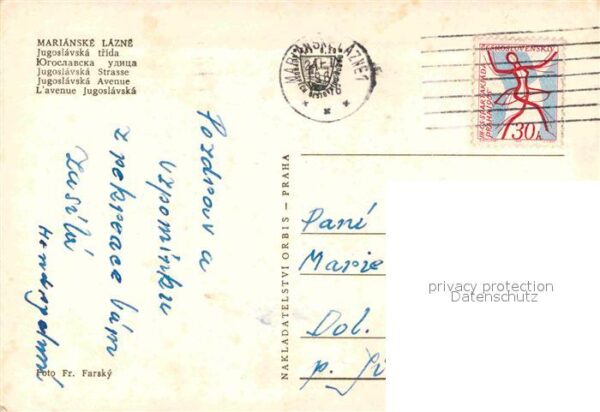 MARIÁNSKÉ LÁZNĚ
Jugoslávská třída
Югославска улица
Jugoslávská Strasse
Jugoslávská Avenue
L'avenue Jugoslávská
MARIÁNSKÉ LÁZNĚ 1
ČESKOSLOVENSKO
PRAHA
30 h
Pozdrav a
vzpomínku
z rekreace Vám
zasílá
NAKLADATELSTVÍ ORBIS – PRAHA
Paní
Marie
Dol.
p.
privacy protection
Datenschutz
Foto Fr. Farský